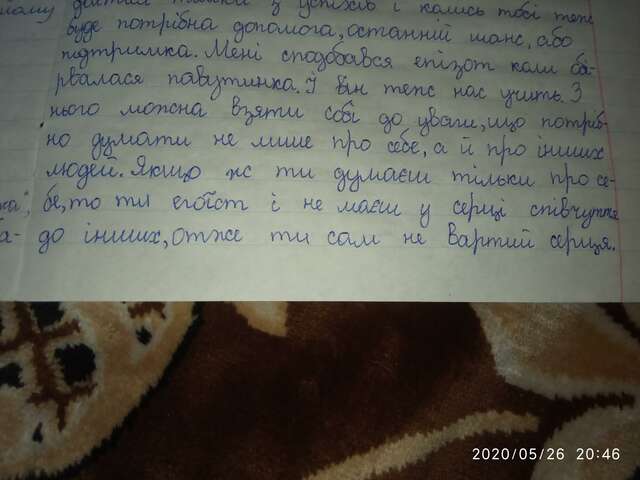 з успіхів і колись тобі теж
буде потрібна допомога, останній шанс, або
підтримка. Мені сподобався епізот коли ба-
рвалася павутинка. Й він теж нас учить. З
нього можна взяти собі до уваги, що потріб-
но думати не лише про себе, а й про інших
людей. Якщо ж ти думаєш тільки про се-
бе, то ти егоїст і не маєш у серці співчуття
до інших, отже ти сам не вартий серця.
2020/05/26 20:46